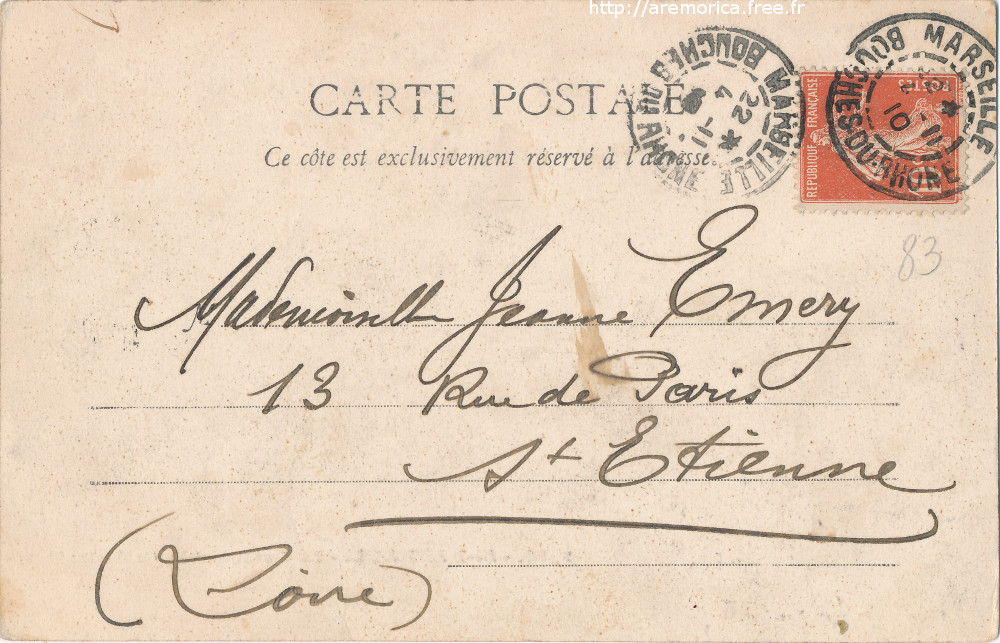 http://aremorica.free.fr
CARTE POSTALE
Ce côte est exclusivement réservé à l'adresse.
MARSEILLE
BOUCHES-DU-RHONE
22
4
11
MARSEILLE
BOUCHES-DU-RHONE
10
11
REPUBLIQUE FRANÇAISE
POSTES
10
83
Mademoiselle Jeanne Emery
13 Rue de Paris
St Etienne
(Loire)